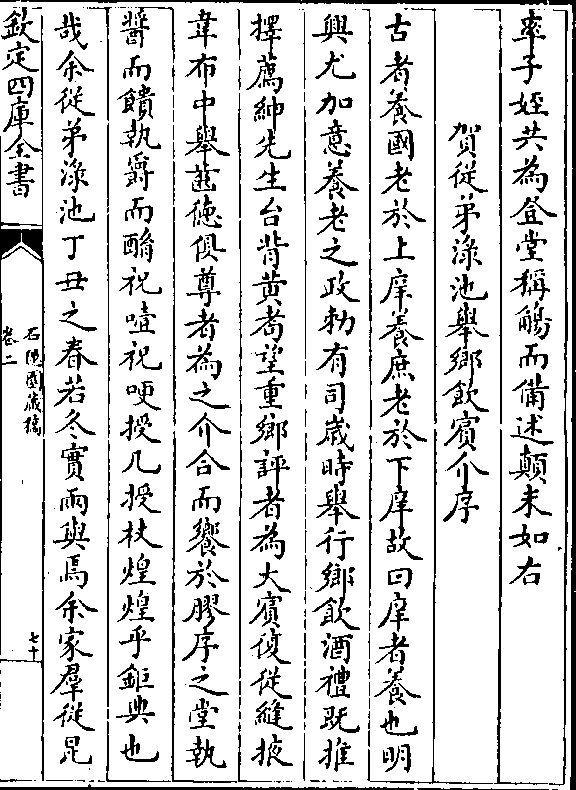 率子姪共為登堂稱觴而備述顛末如右
賀從弟淥池舉鄉飲賓介序
古者養國老於上庠養庶老於下庠故曰庠者養也明
興尤加意養老之政勅有司歲時舉行鄉飲酒禮既推
擇薦紳先生台背黃耇望重鄉評者為大賓復從縫掖
韋布中舉齒德俱尊者為之介合而饗於膠序之堂執
醬而饋執爵而酳祝噎祝哽授几授杖煌煌乎鉅典也
哉余從弟淥池丁丑之春若冬實兩與焉余家羣從昆
欽定四庫全書
石隱園藏稿
卷二
七十